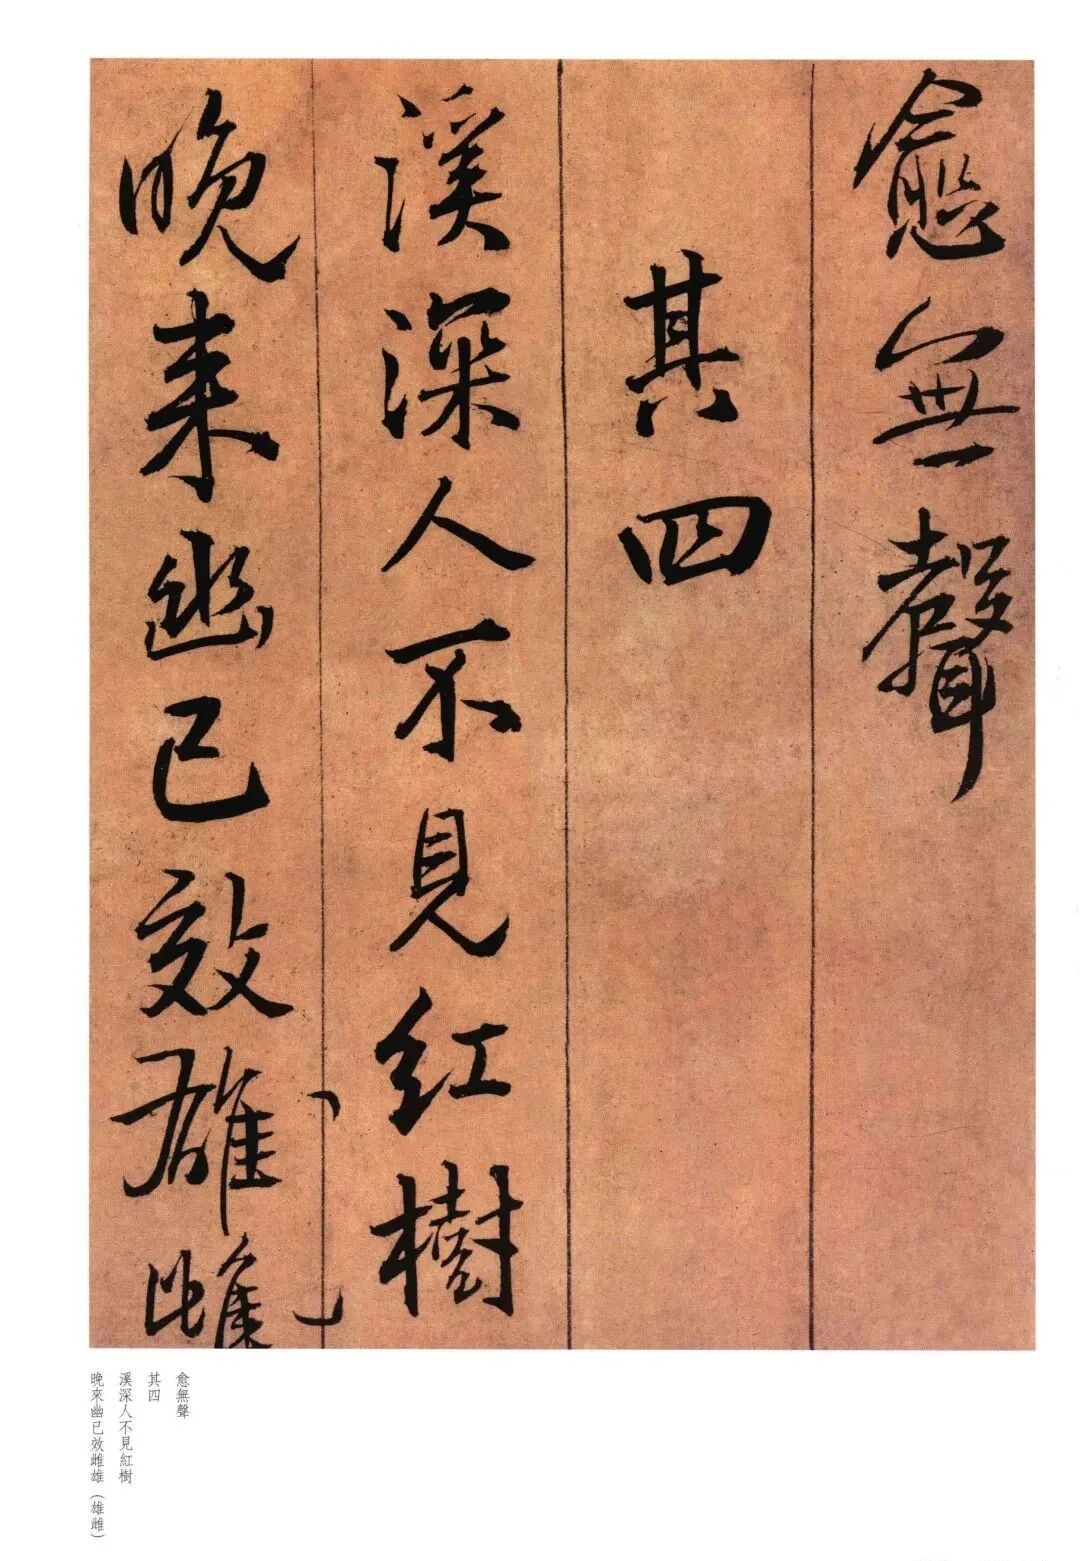 愈無聲
其四
溪深人不見紅樹
晚来幽已效雄雌
愈無聲
其四
溪深人不見紅樹
晚來幽已效雌雄（雄雌）